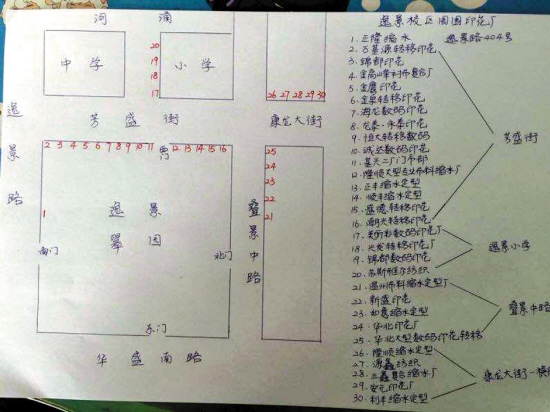 河涌
中学
小学
20
19
18
17
26 27 28 29 30
逸景路
芳盛街
康乐大街
2 3 4 5 6 7 8 9 10 11 12 13 14 15 16
1
逸景
翠园
南门
北门
东门
25
24
23
22
21
叠景中路
华盛南路
逸景校区周围印花厂
逸景路404号
1. 正隆缩水
2. 万基源转移印花
3. 锦都印花
5. 金鹰印花
6. 金泉转移印花
7. 海龙数码印花
8. 龙泰·永泰印花
9. 恒大转移数码
10. 诚达数码印花
12. 隆顺大型专业布料缩水厂
13. 正丰缩水定型
14. 顺丰缩水定型
15. 盛德转移印花
16. 潮兴转移印花
18. 兴龙转移印花厂
19. 锦都数码印花
21. 温州布料缩水定型厂
22. 新盛印花
23. 如意缩水定型
24. 华北印花厂
25. 华北大型数码印花转移
26. 隆顺缩水定型
27. 源鑫纺织
29. 宏元印花厂
30. 利丰缩水定型
芳盛街
逸景小学
叠景中路
康乐大街一横